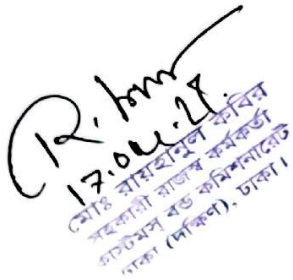 R. 
17.04.24.
মোঃ রায়হানুল কবির
সহকারী রাজস্ব কর্মকর্তা
কাস্টমস বন্ড কমিশনারেট
ঢাকা (দক্ষিণ), ঢাকা।